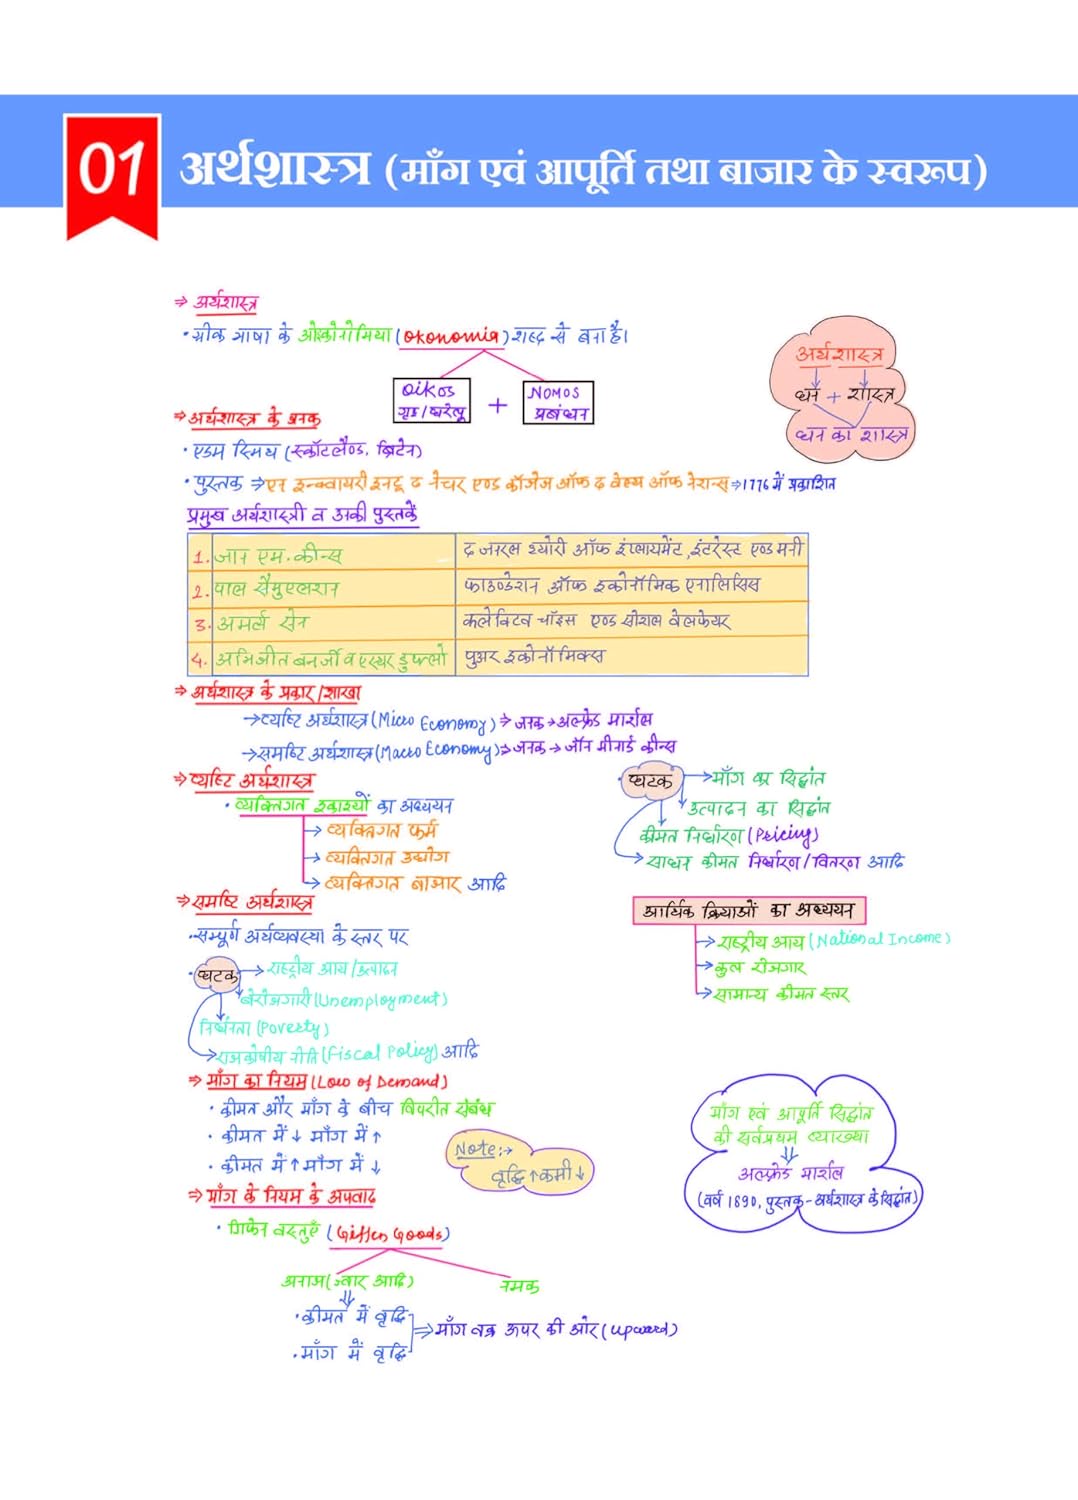 01
अर्थशास्त्र (माँग एवं आपूर्ति तथा बाजार के स्वरूप)
⇒ अर्थशास्त्र
• ग्रीक भाषा के ओकोनोमिया (Okonomia) शब्द से बना है।
Oikos
गृह/घरेलू
+
NOMOS
प्रबंधन
अर्थशास्त्र
धन + शास्त्र
धन का शास्त्र
⇒ अर्थशास्त्र के जनक
• एडम स्मिथ (स्कॉटलैंड, ब्रिटेन)
• पुस्तक ⇒ एन इन्क्वायरी इनटू द नेचर एण्ड कॉजेज ऑफ द वेल्थ ऑफ नेशन्स ⇒ 1776 में प्रकाशित
प्रमुख अर्थशास्त्री व उनकी पुस्तकें
1. जान एम. कीन्स द जनरल थ्योरी ऑफ इंप्लायमेंट, इंटरेस्ट एण्ड मनी
2. पाल सैमुएलसन फाउण्डेशन ऑफ इकोनॉमिक एनालिसिस
3. अमर्त्य सेन कलेक्टिव चॉइस एण्ड सोशल वेलफेयर
4. अभिजीत बनर्जी व एस्थर डुफ्लो पुअर इकोनॉमिक्स
⇒ अर्थशास्त्र के प्रकार/शाखा
→ व्यष्टि अर्थशास्त्र (Micro Economy) ⇒ जनक → अल्फ्रेड मार्शल
→ समष्टि अर्थशास्त्र (Macro Economy) ⇒ जनक → जॉन मीनार्ड कीन्स
⇒ व्यष्टि अर्थशास्त्र
• व्यक्तिगत इकाइयों का अध्ययन
→ व्यक्तिगत फर्म
→ व्यक्तिगत उद्योग
→ व्यक्तिगत बाजार आदि
• घटक → माँग का सिद्धांत
उत्पादन का सिद्धांत
कीमत निर्धारण (Pricing)
साधन कीमत निर्धारण/वितरण आदि
⇒ समष्टि अर्थशास्त्र
• सम्पूर्ण अर्थव्यवस्था के स्तर पर
• घटक → राष्ट्रीय आय/उत्पादन
बेरोजगारी (Unemployment)
निर्धनता (Poverty)
राजकोषीय नीति (Fiscal Policy) आदि
आर्थिक क्रियाओं का अध्ययन
→ राष्ट्रीय आय (National Income)
→ कुल रोजगार
→ सामान्य कीमत स्तर
⇒ माँग का नियम (Law of Demand)
• कीमत और माँग के बीच विपरीत संबंध
• कीमत में ↓ माँग में ↑
• कीमत में ↑ माँग में ↓
Note :→
वृद्धि ↑ कमी ↓
माँग एवं आपूर्ति सिद्धांत
की सर्वप्रथम व्याख्या
⇓
अल्फ्रेड मार्शल
(वर्ष 1890, पुस्तक - अर्थशास्त्र के सिद्धांत)
⇒ माँग के नियम के अपवाद
• गिफेन वस्तुएँ (Giffen Goods)
अनाज (ज्वार आदि)
नमक
• कीमत में वृद्धि
• माँग में वृद्धि
⇒ माँग वक्र ऊपर की ओर (upward)